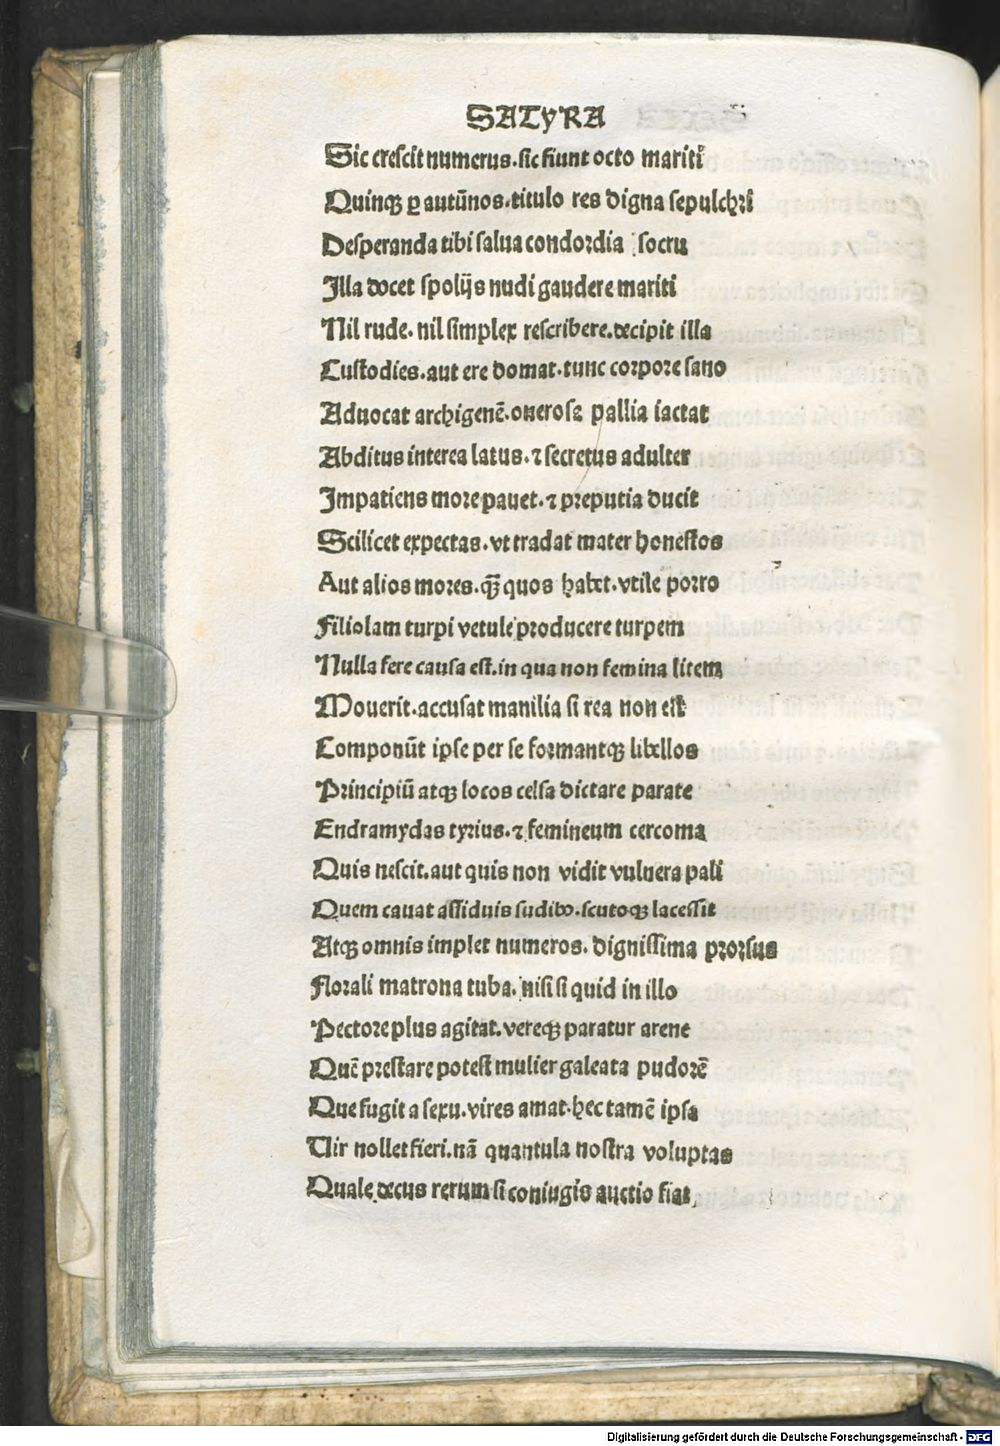 SATyRA
Sic crescit numerus. sic fiunt octo mariti
Quinqꝫ ꝑ autūnos. titulo res digna sepulchri
Desperanda tibi salua condordia socru
Illa docet spolijs nudi gaudere mariti
Nil rude. nil simplex rescribere. decipit illa
Custodies. aut ere domat. tunc corpore sano
Aduocat archigenē. onerosa pallia iactat
Abditus interea latus. ⁊ secretus adulter
Impatiens more pauet. ⁊ preputia ducit
Scilicet expectas. vt tradat mater honestos
Aut alios mores. qꝫ̄ quos habet. vtile porro
Filiolam turpi vetule producere turpem
Nulla fere causa est. in qua non femina litem
Mouerit. accusat manilia si rea non est
Componūt ipse per se formantqꝫ libellos
Principiū atqꝫ locos celsa dictare parate
Endramydas tyrius. ⁊ femineum cercoma
Quis nescit. aut quis non vidit vulnera pali
Quem cauat assiduis sudibo. scutoqꝫ lacessit
Atqꝫ omnis implet numeros. dignissima prorsus
Florali matrona tuba. nisi si quid in illo
Pectore plus agitat. vereqꝫ paratur arene
Quē prestare potest mulier galeata pudorē
Que fugit a sexu. vires amat. hec tamē ipsa
Vir nollet fieri. nā quantula nostra voluptas
Quale decus rerum si coniugis auctio fiat
Digitalisierung gefördert durch die Deutsche Forschungsgemeinschaft - DFG